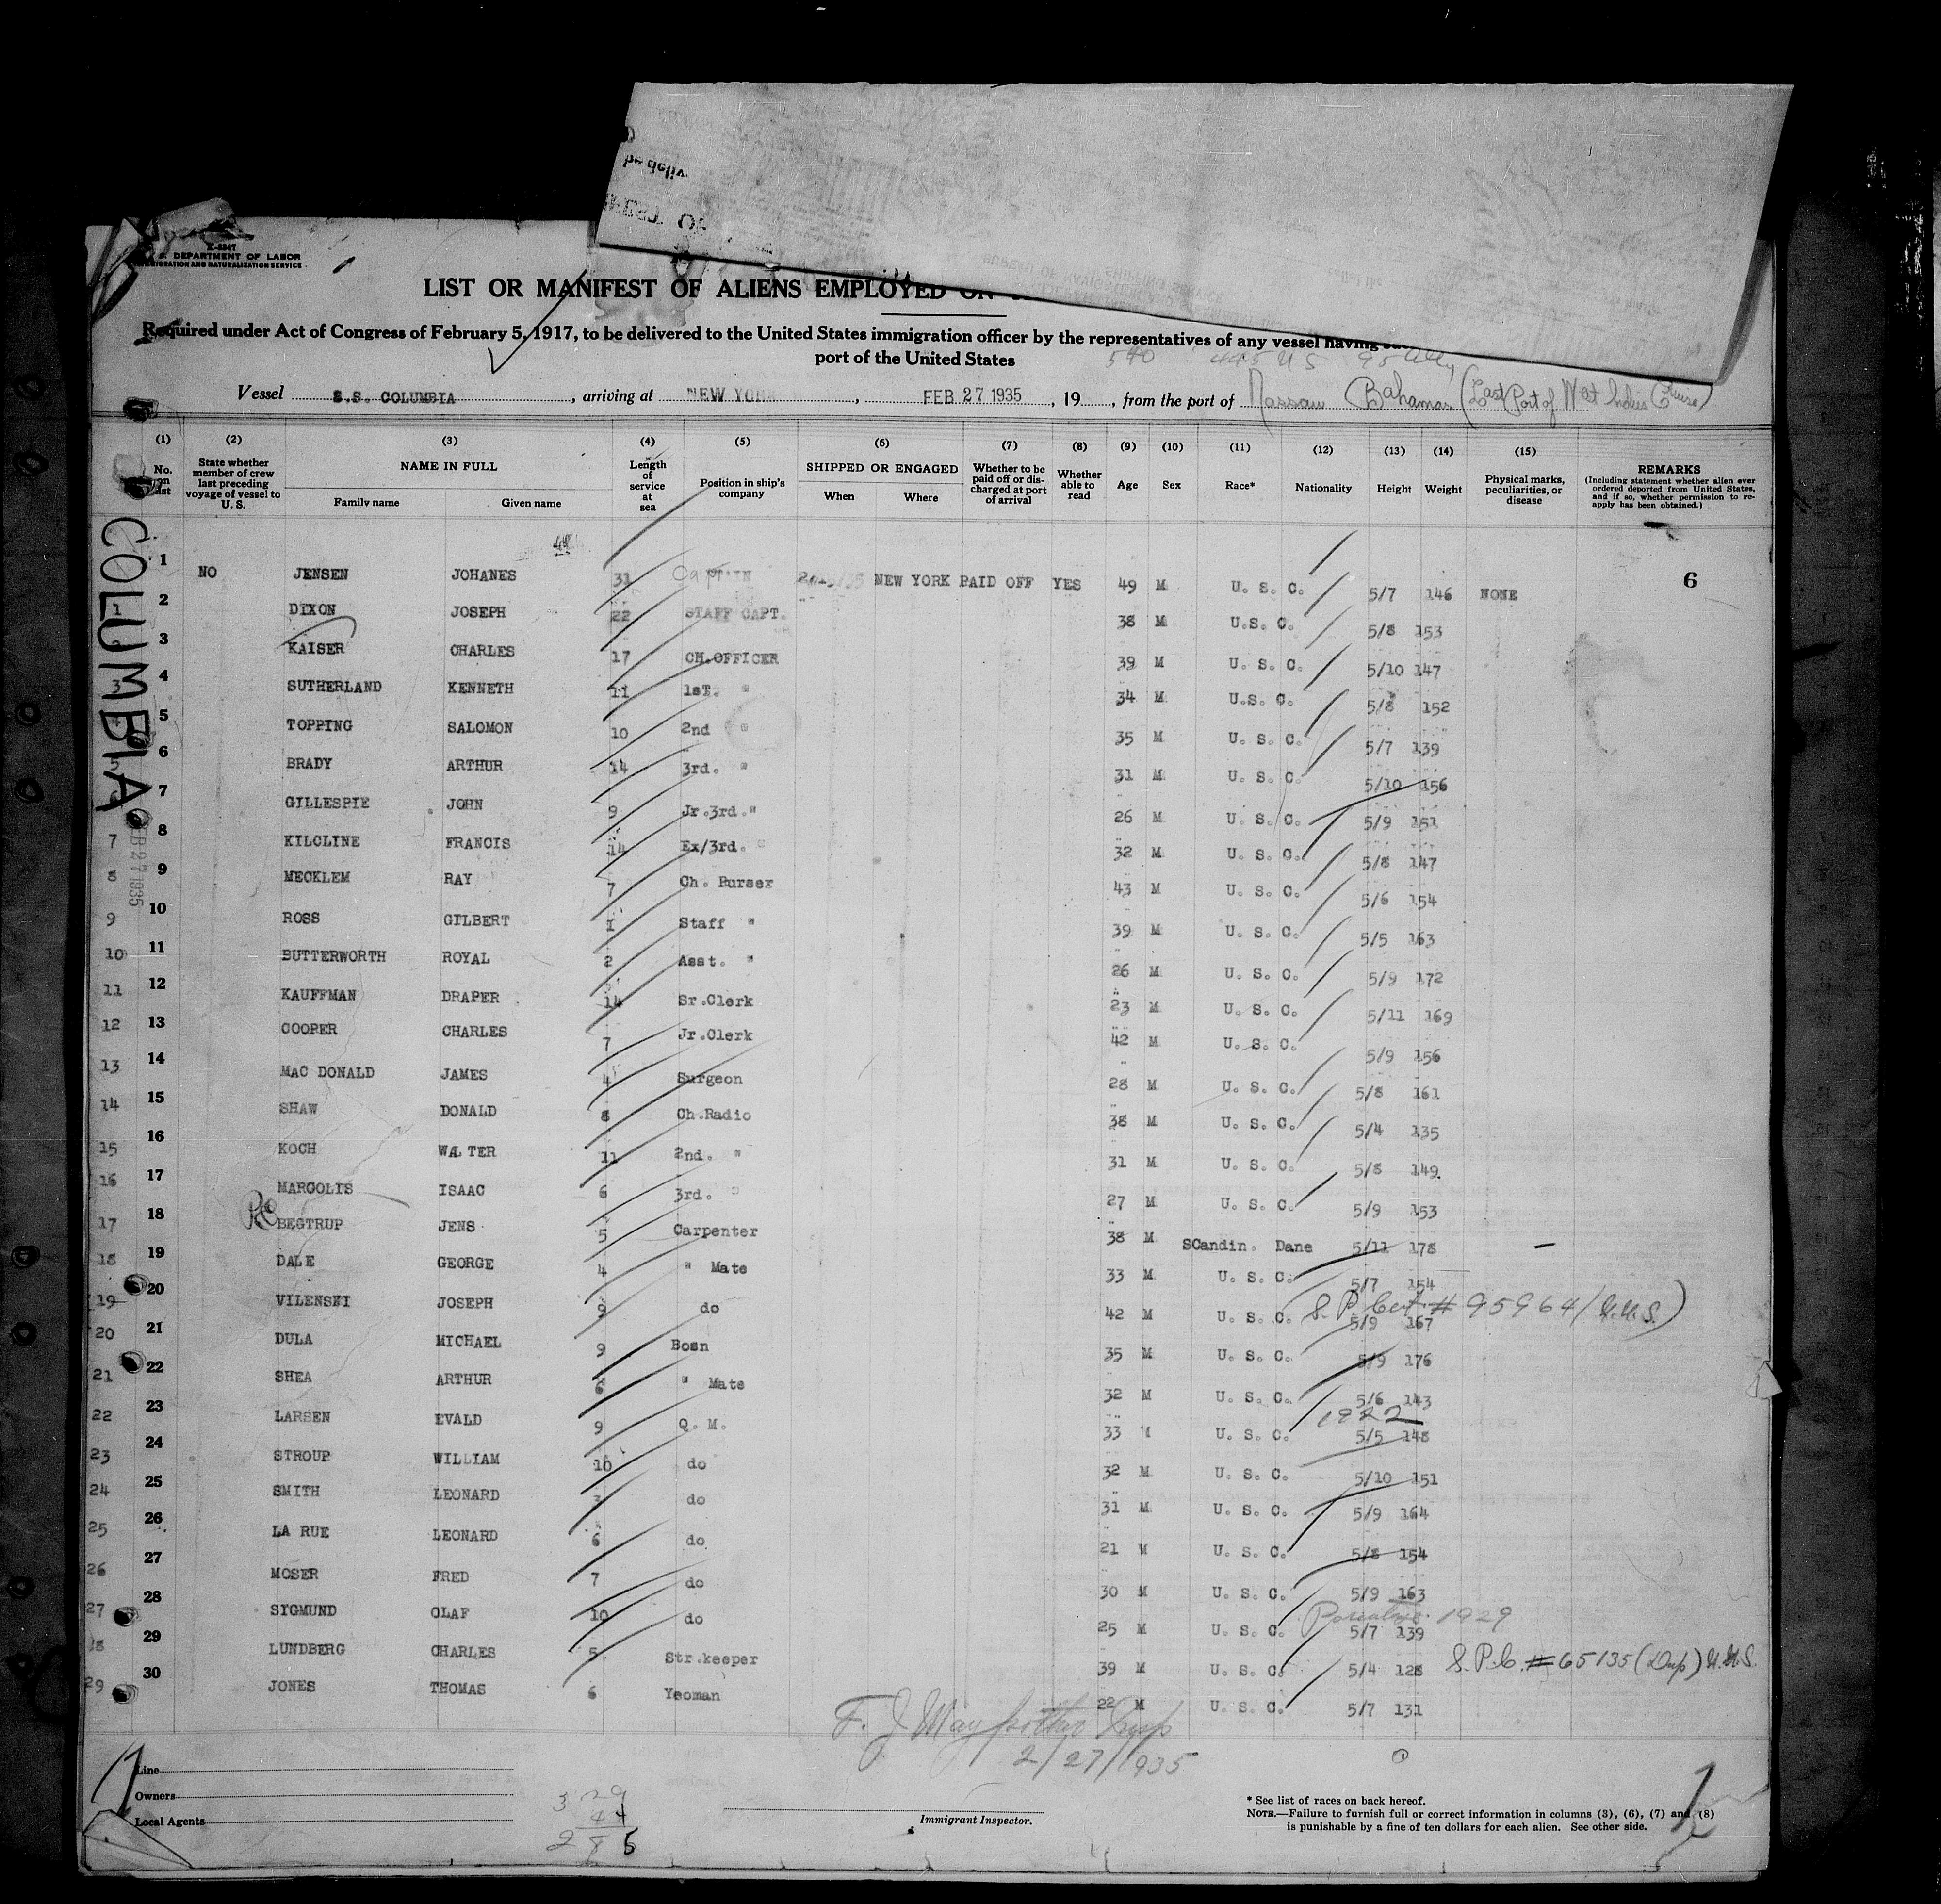 K-8847
DEPARTMENT OF LABOR
IMMIGRATION AND NATURALIZATION SERVICE
LIST OR MANIFEST OF ALIENS EMPLOYED ON
Required under Act of Congress of February 5, 1917, to be delivered to the United States immigration officer by the representatives of any vessel having
port of the United States
540 445 US 95 Aliy
Vessel S.S. COLUMBIA, arriving at NEW YORK, FEB 27 1935, 19, from the port of Nassau Bahamas (Last Port of West Indies Cruise)
(1) (2) (3) (4) (5) (6) (7) (8) (9) (10) (11) (12) (13) (14) (15)
No. on list State whether member of crew last preceding voyage of vessel to U. S. NAME IN FULL Family name Given name Length of service at sea Position in ship's company SHIPPED OR ENGAGED When Where Whether to be paid off or discharged at port of arrival Whether able to read Age Sex Race* Nationality Height Weight Physical marks, peculiarities, or disease REMARKS (Including statement whether alien ever ordered deported from United States, and if so, whether permission to reapply has been obtained.)
COLUMBIA
1 NO JENSEN JOHANES 31 CAPTAIN NEW YORK PAID OFF YES 49 M U. S. C. 5/7 146 NONE 6
1 2 DIXON JOSEPH 22 STAFF CAPT. 38 M U.S. C. 5/8 153
3 KAISER CHARLES 17 CH.OFFICER 39 M U. S. C. 5/10 147
3 4 SUTHERLAND KENNETH 11 1sT. " 34 M U.S. C. 5/8 152
4 5 TOPPING SALOMON 10 2nd " 35 M U. S. C. 5/7 139
5 6 BRADY ARTHUR 14 3rd. " 31 M U. S. C. 5/10 156
6 7 GILLESPIE JOHN 9 Jr.3rd." 26 M U. S. C. 5/9 151
7 8 KILCLINE FRANCIS 14 Ex/3rd. " 32 M U. S. C. 5/8 147
8 9 MECKLEM RAY 7 Ch. Purser 43 M U. S. C. 5/6 154
9 10 ROSS GILBERT 1 Staff " 39 M U. S. C. 5/5 163
10 11 BUTTERWORTH ROYAL 2 Asst. " 26 M U. S. C. 5/9 172
11 12 KAUFFMAN DRAPER 14 Sr.Clerk 23 M U. S. C. 5/11 169
12 13 COOPER CHARLES 7 Jr.Clerk 42 M U. S. C. 5/9 156
13 14 MAC DONALD JAMES 4 Surgeon 28 M U. S. C. 5/8 161
14 15 SHAW DONALD 8 Ch.Radio 38 M U. S. C. 5/4 135
15 16 KOCH WALTER 11 2nd. " 31 M U. S. C. 5/8 149.
16 17 MARGOLIS ISAAC 6 3rd. " 27 M U. S. C. 5/9 153
17 18 BEGTRUP JENS 5 Carpenter 38 M SCandin. Dane 5/11 178 —
18 19 DALE GEORGE 4 " Mate 33 M U. S. C. 5/7 154
19 20 VILENSKI JOSEPH 9 do 42 M U. S. C. S.P. Cert. # 95964 5/9 167
20 21 DULA MICHAEL 9 Bosn 35 M U. S. C. 5/9 176
21 22 SHEA ARTHUR 6 " Mate 32 M U. S. C. 5/6 143
22 23 LARSEN EVALD 9 Q. M. 33 M U. S. C. 1922 5/5 148
23 24 STROUP WILLIAM 10 do 32 M U. S. C. 5/10 151
24 25 SMITH LEONARD 3 do 31 M U. S. C. 5/9 164
25 26 LA RUE LEONARD 6 do 21 M U. S. C. 5/8 154
26 27 MOSER FRED 7 do 30 M U. S. C. 5/9 163
27 28 SYGMUND OLAF 10 do 25 M U. S. C. 1929 5/7 139
28 29 LUNDBERG CHARLES 5 Str.keeper 39 M U. S. C. 5/4 128 S.P.C. #65135 (Dup)
29 30 JONES THOMAS 6 Yeoman 22 M U. S. C. 5/7 131
2/27/1935
Line
Owners
Local Agents
329
44
285
Immigrant Inspector.
* See list of races on back hereof.
NOTE.—Failure to furnish full or correct information in columns (3), (6), (7) and (8)
is punishable by a fine of ten dollars for each alien. See other side.